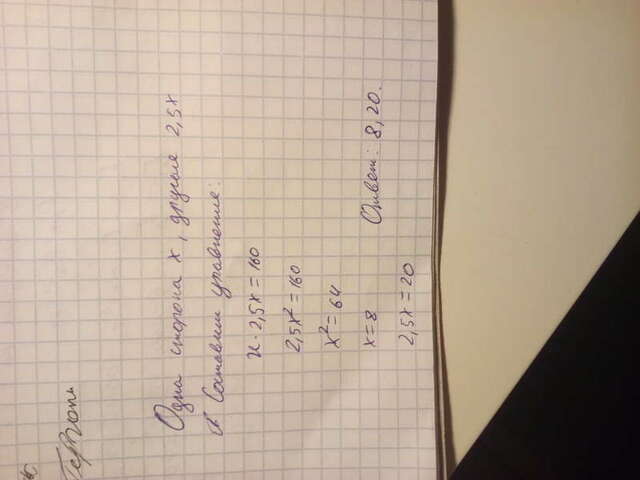 Одна сторона x, другая 2,5x
Составим уравнение:
x·2,5x=160
2,5x²=160
x²=64
x=8
2,5x=20
Ответ: 8, 20.